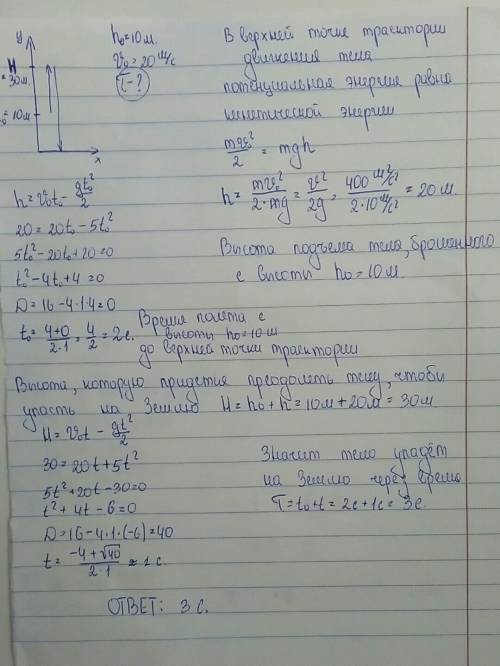 y
H = 30м.
h₀ = 10м
x
h₀ = 10м.
v₀ = 20 м/с
T - ?
В верхней точке траектории
движения тела
потенциальная энергия равна
кинетической энергии
mv₀²/2 = mgh
h = mv₀²/2·mg = v₀²/2g = 400 м²/с²/2·10 м/с² = 20 м.
Высота подъема тела, брошенного
с высоты h₀ = 10 м
h = v₀t₀ - gt₀²/2
20 = 20t₀ - 5t₀²
5t₀² - 20t₀ + 20 = 0
t₀² - 4t₀ + 4 = 0
D = 16 - 4·1·4 = 0
t₀ = 4+0/2·1 = 4/2 = 2c.
Время полета с
высоты h₀ = 10м
до верхней точки траектории
Высота, которую придется преодолеть телу, чтобы
упасть на Землю H = h₀ + h = 10м + 20м = 30м
H = v₀t - gt²/2
30 = 20t + 5t²
5t² + 20t - 30 = 0
t² + 4t - 6 = 0
D = 16 - 4·1·(-6) = 40
t = -4 + √40/2·1 ≈ 1 c.
Значит тело упадёт
на Землю через время
T = t₀ + t = 2c + 1c = 3c.
ОТВЕТ: 3 С.